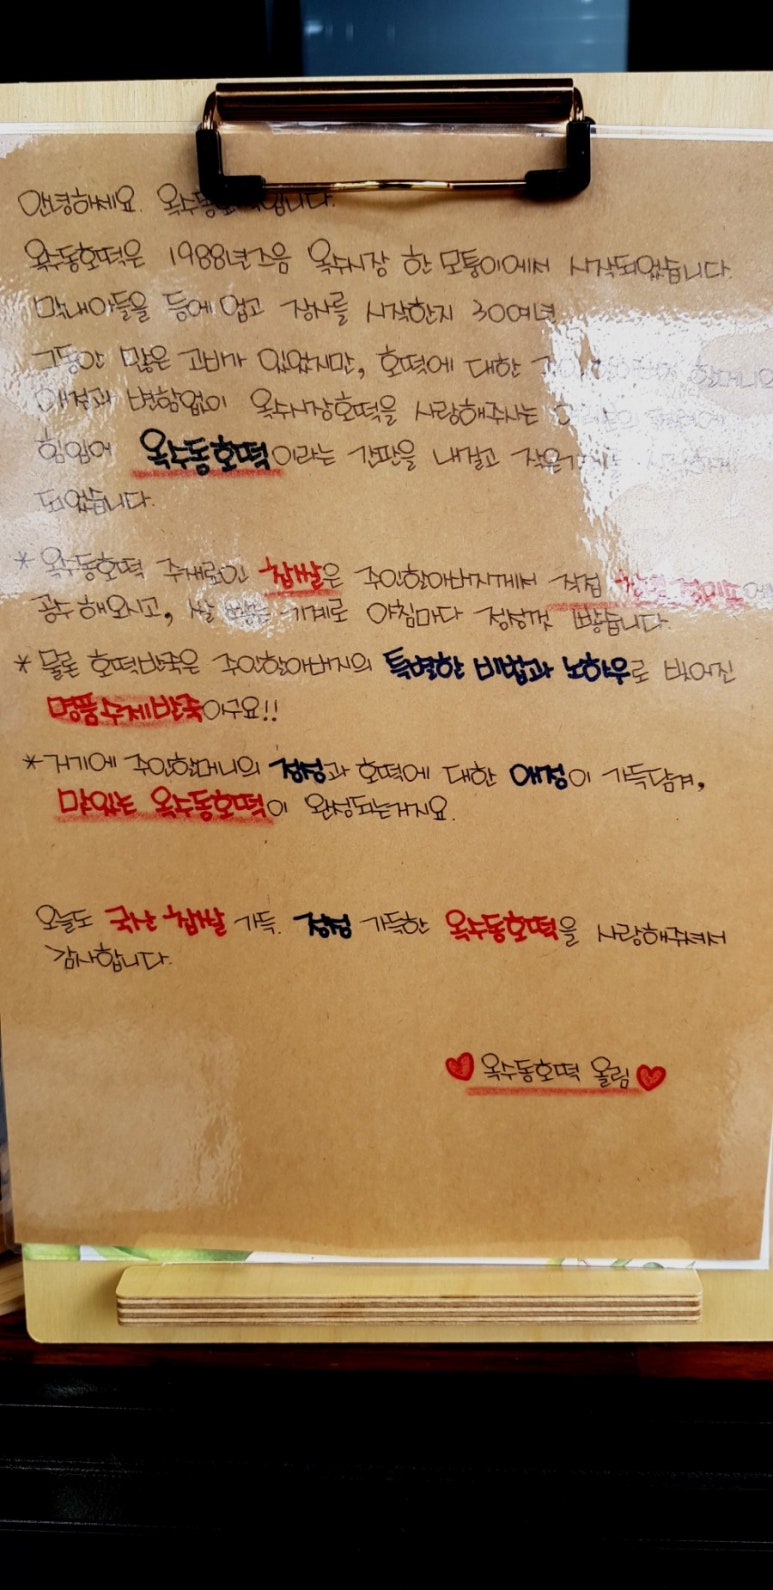 안녕하세요. 옥수동호떡입니다.
옥수동호떡은 1988년즈음 옥수시장 한 모퉁이에서 시작되었습니다.
막내아들을 등에 업고 장사를 시작한지 30여년
그동안 많은 고비가 있었지만, 호떡에 대한
애정과 변함없이 옥수시장호떡을 사랑해주시는
힘입어 옥수동호떡이라는 간판을 내걸고
되었습니다.
* 옥수동호떡 주재료인 찹쌀은 주인할아버지께서 직접
공수해오시고, 쌀 빻는 기계로 아침마다 정성껏 빻습니다.
* 물론 호떡반죽은 주인할아버지의 특별한 비법과 노하우로 빚어진
명품수제반죽이구요!!
* 거기에 주인할머니의 정성과 호떡에 대한 애정이 가득담겨,
맛있는 옥수동호떡이 완성되는거지요.
오늘도 국산 찹쌀 가득. 정성 가득한 옥수동호떡을 사랑해주셔서
감사합니다.
♥ 옥수동호떡 올림 ♥